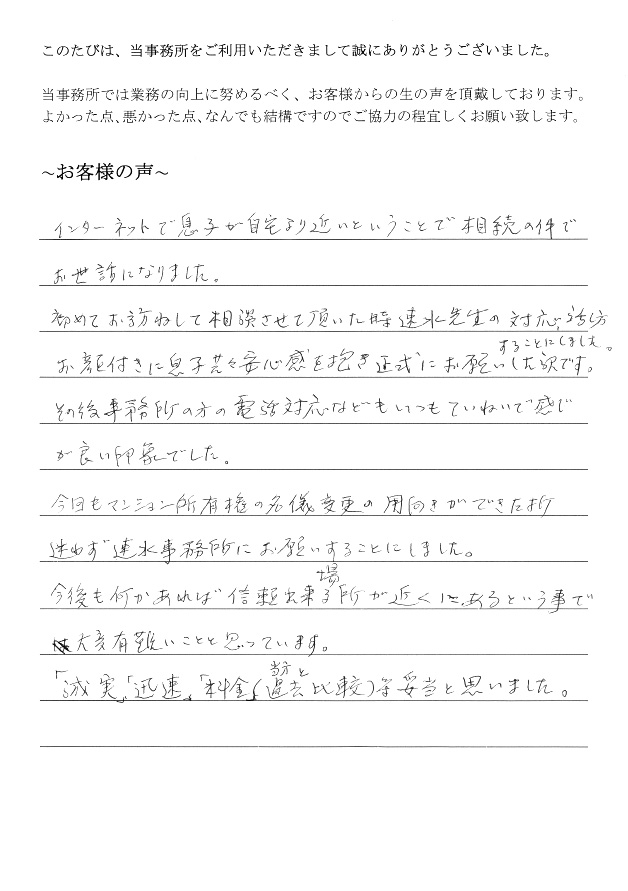 このたびは、当事務所をご利用いただきまして誠にありがとうございました。
当事務所では業務の向上に努めるべく、お客様からの生の声を頂戴しております。
よかった点、悪かった点、なんでも結構ですのでご協力の程宜しくお願い致します。
~お客様の声~
インターネットで息子が自宅より近いということで相続の件で
お世話になりました。
初めてお訪ねして相談させて頂いた時速水先生の対応、話し方
することにしました。
お顔付きに息子共々安心感を抱き正式にお願いした訳です。
その後事務所の方の電話対応などもいつもていねいで感じ
が良い印象でした。
今回もマンション所有権の名儀変更の用向きができた折
迷わず速水事務所にお願いすることにしました。
場
今後も何かあれば信頼出来る所が近くにあるという事で
大変有難いことと思っています。
当方と
「誠実」「迅速」「料金」(過去比較)等妥当と思いました。